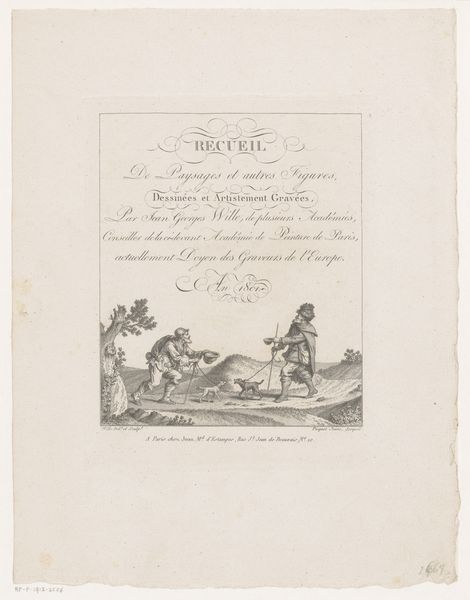 RECUEIL
De Paysages et autres Figures,
Dessinées et Artistement Gravées,
Par Jean Georges Wille, de plusieurs Académies,
Conseiller de la ci-devant Académie de Peinture de Paris,
actuellement Doyen des Graveurs de l'Europe.
An 1801.
Wille del. et Sculp.
Picquet Junr. Scripsit
A Paris chez Jean, Md. d'Estampes, Rue St. Jean de Beauvais, No. 10.
RP-P-1912-2506